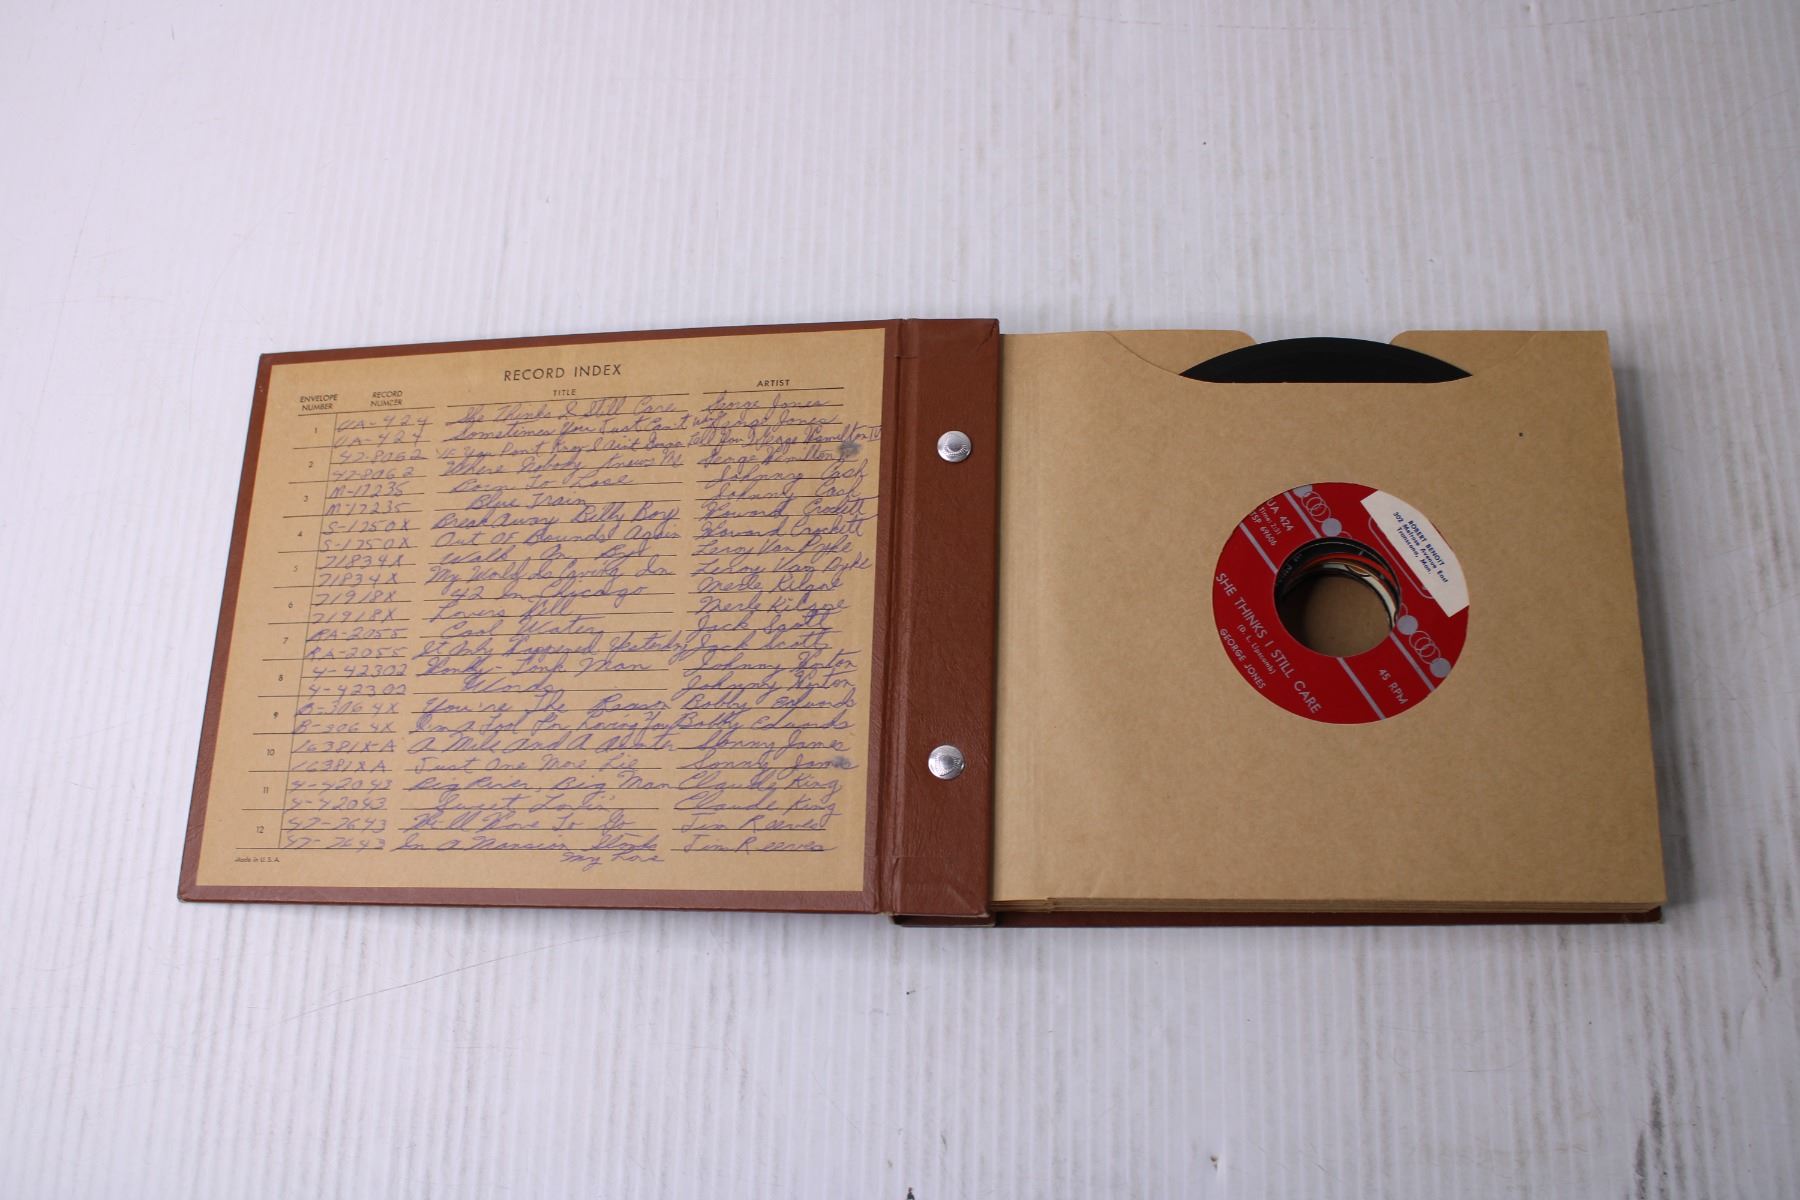 RECORD INDEX
ENVELOPE NUMBER RECORD NUMBER TITLE ARTIST
1 UA-424 She Thinks I Still Care George Jones
UA-424 Sometimes You Just Can't Win George Jones
2 47-8062 If You Don't Know I Ain't Gonna Tell You George Hamilton IV
47-8062 Where Nobody Knows Me George Hamilton
3 M-17235 Born To Lose Johnny Cash
M-17235 Blue Train Johnny Cash
4 S-1750X Break Away Billy Boy Howard Crockett
S-1750X Out Of Bounds Again Howard Crockett
5 71834X Walk On By Leroy Van Dyke
71834X My World Is Caving In Leroy Van Dyke
6 71918X 42 In Chicago Merle Kilgore
71918X Lovers Hill Merle Kilgore
7 RA-2055 Cool Water Jack Scott
RA-2055 It Only Happened Yesterday Jack Scott
8 4-42302 Honky-Tonk Man Johnny Horton
4-42302 Words Johnny Horton
9 B-3064X You're The Reason Bobby Edwards
B-3064X I'm a Fool For Loving You Bobby Edwards
10 16381X-A A Mile And A Quarter Sonny James
16381XA Just One More Lie Sonny James
11 4-42043 Big River, Big Man Claude King
4-42043 Sweet Lovin' Claude King
12 47-7643 He'll Have To Go Jim Reeves
47-7643 In A Mansion Stands My Love Jim Reeves
Made in U.S.A.
ROBERT BENOIT
302 Melrose Avenue East
Transcona, Man.
UA 424
Time: 2:31
SHE THINKS I STILL CARE
GEORGE JONES
45 RPM